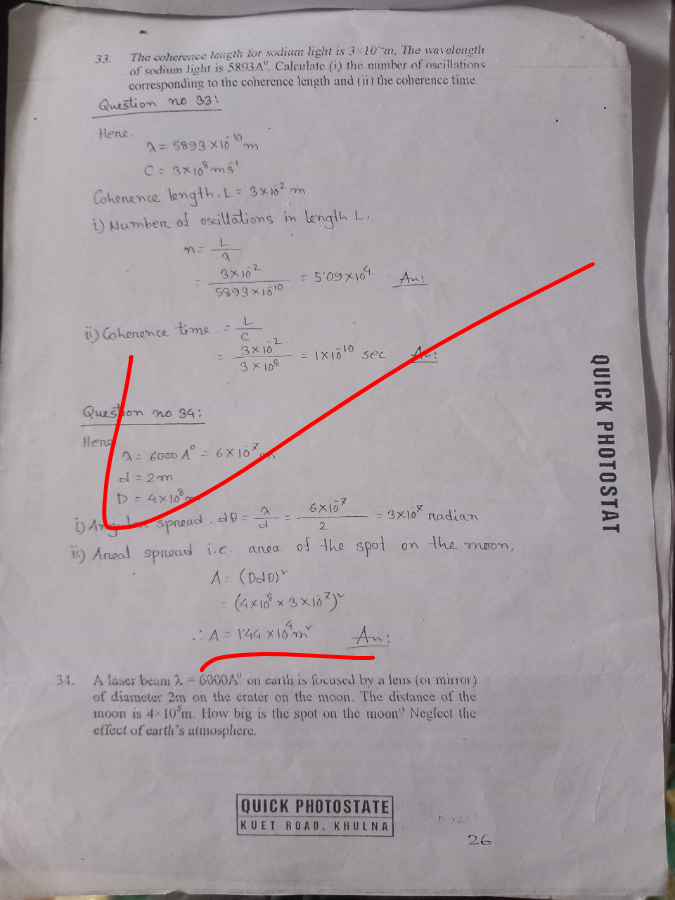 33. The coherence length for sodium light is 3×10⁻²m, The wavelength
of sodium light is 5893A°. Calculate (i) the number of oscillations
corresponding to the coherence length and (ii) the coherence time.
Question no 33:
Here,
λ = 5893 × 10⁻¹⁰ m
C = 3×10⁸ ms⁻¹
Coherence length, L = 3×10⁻² m
i) Number of oscillations in length L.
n = L/λ
= 3×10⁻² / 5893×10⁻¹⁰ = 5.09×10⁴ Ans
ii) Coherence time = L/C
= 3×10⁻² / 3×10⁸ = 1×10⁻¹⁰ sec Ans:
Question no 34:
Here
λ = 6000 A° = 6×10⁻⁷ m
d = 2m
D = 4×10⁸ m
i) Angular spread. dθ = λ/d = 6×10⁻⁷/2 = 3×10⁻⁷ radian
ii) Areal spread i.e. area of the spot on the moon,
A = (Ddθ)²
= (4×10⁸ × 3×10⁻⁷)²
∴ A = 1.44 ×10⁴ m² Ans:
34. A laser beam λ = 6000A° on earth is focused by a lens (or mirror)
of diameter 2m on the crater on the moon. The distance of the
moon is 4×10⁸m. How big is the spot on the moon? Neglect the
effect of earth's atmosphere.
QUICK PHOTOSTAT
QUICK PHOTOSTATE
KUET ROAD, KHULNA
26